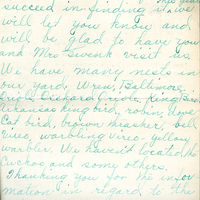 succeed in finding it, we
will let you know and
will be glad to have you
and Mrs Swenk visit us.
We have many nests in
our yard, Wren, Baltimore
Oriole, Orchard Oriole, King Bird
Arkansas kingbird, robin, dove
Cat bird, brown thrasher, Bell
Vireo, warbling Vireo, yellow
warbler. We haven't located the
Cuckoo and some others.
Thanking you for the infor-
mation in regard to the